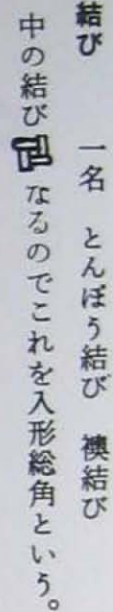 結び 一名 とんぼう結び 襖結び
中の結び なるのでこれを入形総角という。